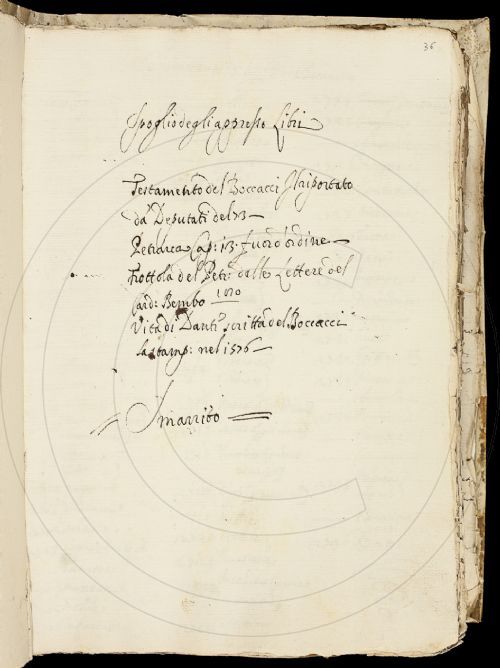 36
Spoglio degli appresso Libri
Testamento del Boccacci riportato
da Deputati del 73
Petrarca Cap: 13. fuor d'ordine
Frottola del Petr: dalle Lettere del
Card: Bembo
Vita di Dante scritta del Boccacci
la stamp: nel 1576
Smarrito